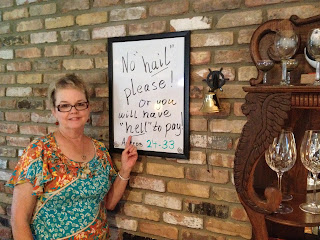 No "hail"
please!
or you
will have
"hell" to pay!
24-33